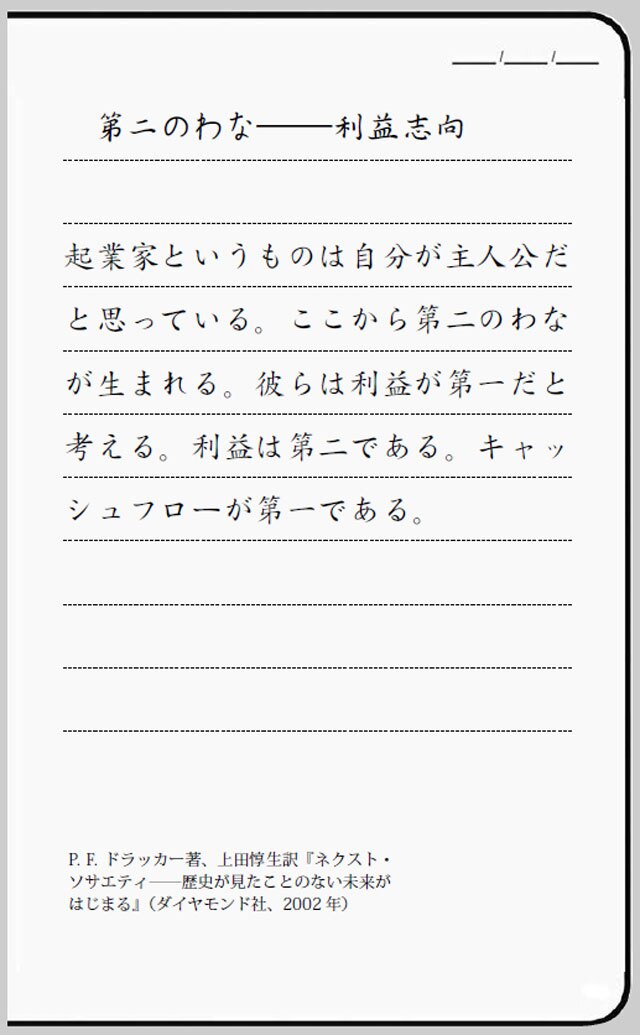 ＿/＿/＿
第二のわな――利益志向
起業家というものは自分が主人公だ
と思っている。ここから第二のわな
が生まれる。彼らは利益が第一だと
考える。利益は第二である。キャッ
シュフローが第一である。
P. F. ドラッカー著、上田惇生訳『ネクスト・
ソサエティ――歴史が見たことのない未来が
はじまる』（ダイヤモンド社、2002 年）